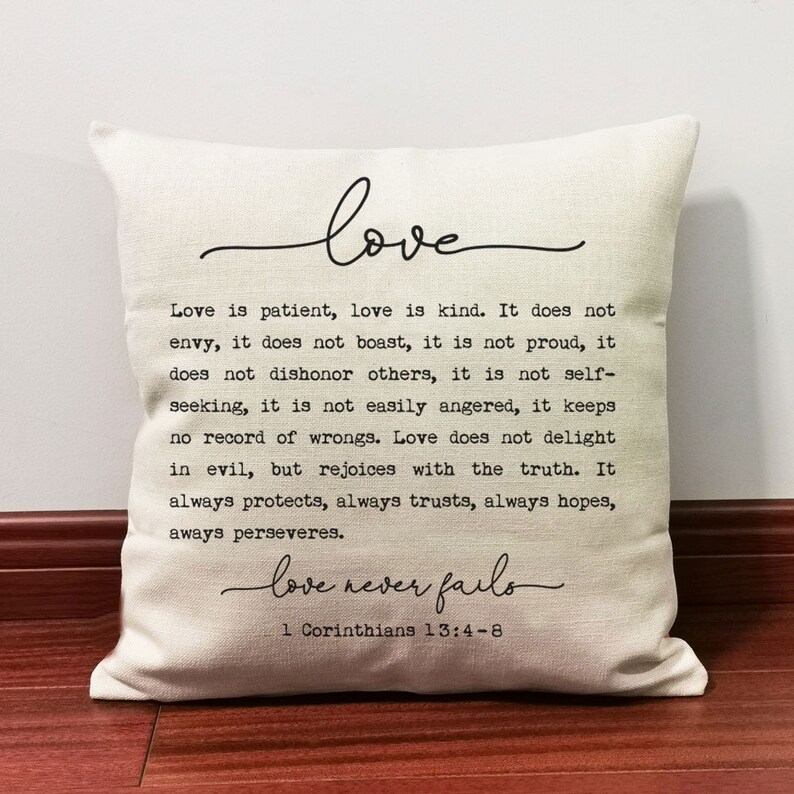 love
Love is patient, love is kind. It does not
envy, it does not boast, it is not proud, it
does not dishonor others, it is not self-
seeking, it is not easily angered, it keeps
no record of wrongs. Love does not delight
in evil, but rejoices with the truth. It
always protects, always trusts, always hopes,
aways perseveres.
love never fails
1 Corinthians 13:4-8